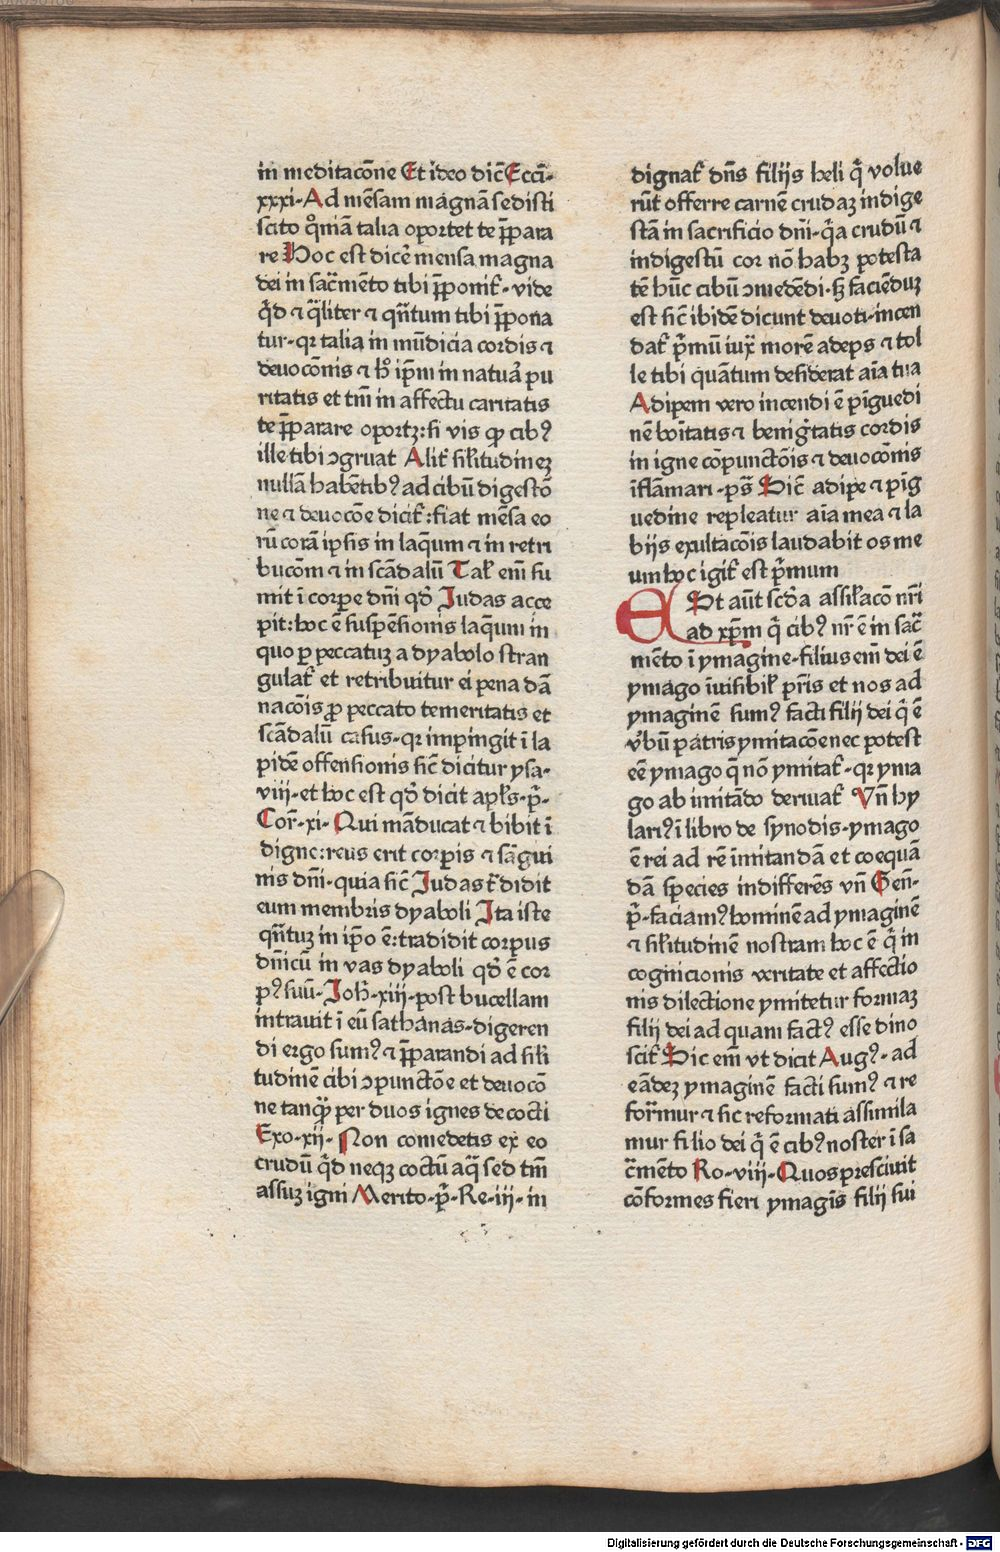 in meditacōne Et ideo dic̄ Eccī-
xxxi-Ad mēsam magnā sedisti
scito qm̄ā talia oportet te p̄para
re Hoc est dicē mensa magna
dei in sac̄mēto tibi p̄ponit᷑-vide
q̄d ⁊ q̄liter ⁊ qn̄tum tibi p̄pona
tur-qꝛ talia in mūdicia cordis ⁊
deuocōnis ⁊ h° ip̄m in natuā pu
ritatis et tm̄ in affectu caritatis
te p̄parare oportꝫ:si vis ꝙ cibꝰ
ille tibi ꝯgruat Alit᷑ silitudineꝫ
nullā habētibꝰ ad cibū digestō
ne ⁊ deuocōe dicit᷑:fiat mēsa eo
rū corā ipsis in laq̄um ⁊ in retri
bucōm ⁊ in scādalū Tal᷑ em̄ su
mit ī corpe dn̄i qd̓ Judas acce
pit:hoc ē suspēsionis laq̄um in
quo ꝑ peccatuꝫ a dyabolo stran
gulat᷑ et retribuitur ei pena dā
nacōis ꝓ peccato temeritatis et
scādalū casus-qꝛ impingit ī la
pidē offensionis sic̄ dicitur ysa-
viii-et hoc est qd̓ dicit apl̄s-p̄-
Cor̄-xi-Qui māducat ⁊ bibit ī
digne:reus erit corpis ⁊ sāgui
nis dn̄i-quia sic̄ Judas t᷑didit
eum membris dyaboli Ita iste
qn̄tuꝫ in ip̄o ē:tradidit corpus
dn̄icū in vas dyaboli qd̓ ē cor
pꝰ suū-Joh̄-xiii-post bucellam
intrauit ī eū sathanas-digeren
di ergo sumꝰ ⁊ p̄parandi ad sili
tudinē cibi ꝯpunctōe et deuocō
ne tanq̄ per duos ignes decocti
Exo-xij-Non comedetis ex eo
crudū q̄d neqꝫ coctū aq̄ sed tm̄
assuꝫ igni Merito-p̄-Re-iii-in
dignat᷑ dn̄s filijs heli q̄ volue
rūt offerre carnē crudaꝫ indige
stā in sacrificio dn̄i-q̄a crudū ⁊
indigestū cor nō habꝫ potesta
tē hūc cibū ꝯmedēdi-sꝫ faciēduꝫ
est sic̄ ibidē dicunt deuoti-incen
dat᷑ p̄mū iux̄ morē adeps ⁊ tol
le tibi quātum desiderat aīa tua
Adipem vero incendi ē piguedi
nē boītatis ⁊ benigr̄tatis cordis
in igne cōpunctōis ⁊ deuocōnis
īflāmari-ps̄ Sic̄ adipe ⁊ pīg
uedine repleatur aīa mea ⁊ la
bijs exultacōis laudabit os me
um hoc igit᷑ est p̄mum
ESt aūt scd̓a assil̄acō nr̄i
ad xp̄m q̄ cibꝰ nr̄ ē in sac̄
mēto ī ymagine-filius em̄ dei ē
ymago īuisibil᷑ pr̄is et nos ad
ymaginē sumꝰ facti filij dei q̄ ē
v̓bū patris ymitacōe nec potest
eē ymago q̄ nō ymitat᷑-qꝛ yma
go ab imitādo deriuat᷑ Vn̄ hy
lariꝰ ī libro de synodis-ymago
ē rei ad rē īmitandā et coequā
dā species indifferēs vn̄ Gen̄-
p̄-faciamꝰ hominē ad ymaginē
⁊ silitudinē nostram hoc ē q̄ in
cognicionis veritate et affectio
nis dilectione ymitetur formaꝫ
filij dei ad quam factꝰ esse dino
scit᷑ Sic em̄ vt dicit Augꝰ-ad
eādeꝫ ymaginē facti sumꝰ ⁊ re
for̄mur ⁊ sic reformati assimila
mur filio dei q̄ ē cibꝰ noster ī sa
c̄mēto Ro-viii-Quos presciuit
cōformes fieri ymagīs filij sui
Digitalisierung gefördert durch die Deutsche Forschungsgemeinschaft - DFG